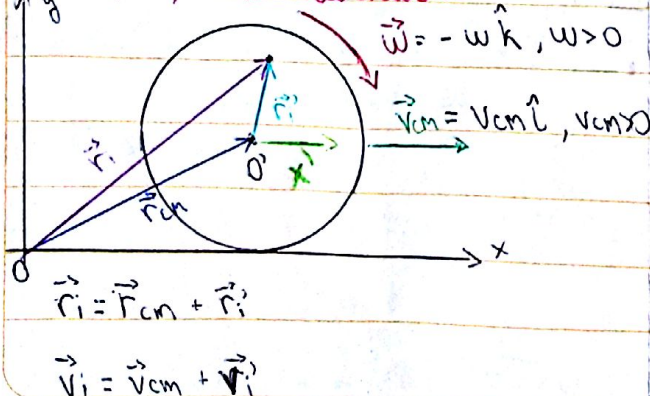 y
ω⃗ = - ω k̂ , ω > 0
v⃗cm = vcm î , vcm>0
r⃗i'
r⃗i
O'
x'
r⃗cm
x
O
r⃗i = r⃗cm + r⃗i'
v⃗i = v⃗cm + v⃗i'